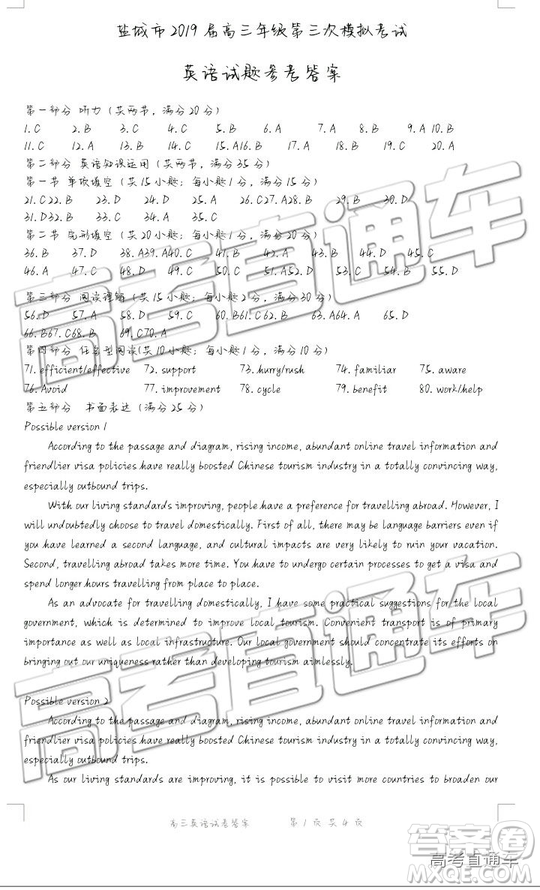 盐城市2019届高三年级第三次模拟考试
英语试题参考答案
第一部分 听力（共两节，满分20分）
1.C 2.B 3.C 4.C 5.B 6.A 7.A 8.B 9.A 10.B
11.C 12.A 13.B 14.C 15.A 16.B 17.A 18.B 19.C 20.A
第二部分 英语知识运用（共两节，满分35分）
第一节 单项填空（共15小题；每小题1分，满分15分）
21.C 22.B 23.D 24.D 25.A 26.C 27.A 28.B 29.B 30.D
31.D 32.B 33.C 34.A 35.C
第二节 完形填空（共20小题；每小题1分，满分20分）
36.B 37.D 38.A 39.A 40.C 41.B 42.A 43.B 44.D 45.C
46.A 47.C 48.D 49.C 50.C 51.A 52.D 53.C 54.B 55.D
第三部分 阅读理解（共15小题；每小题2分，满分30分）
56.D 57.A 58.D 59.C 60.B 61.C 62.B 63.A 64.A 65.D
66.B 67.C 68.B 69.C 70.A
第四部分 任务型阅读(共10小题；每小题1分，满分10分）
71. efficient/effective 72. support 73. hurry/rush 74. familiar 75. aware
76. Avoid 77. improvement 78. cycle 79. benefit 80. work/help
第五部分 书面表达（满分25分）
Possible version 1
According to the passage and diagram, rising income, abundant online travel information and
friendlier visa policies have really boosted Chinese tourism industry in a totally convincing way,
especially outbound trips.
With our living standards improving, people have a preference for travelling abroad. However, I
will undoubtedly choose to travel domestically. First of all, there may be language barriers even if
you have learned a second language, and cultural impacts are very likely to ruin your vacation.
Second, travelling abroad takes more time. You have to undergo certain processes to get a visa and
spend longer hours travelling from place to place.
As an advocate for travelling domestically, I have some practical suggestions for the local
government, which is determined to improve local tourism. Convenient transport is of primary
importance as well as local infrastructure. Our local government should concentrate its efforts on
bringing out our uniqueness rather than developing tourism aimlessly.
Possible version 2
According to the passage and diagram, rising income, abundant online travel information and
friendlier visa policies have really boosted Chinese tourism industry in a totally convincing way,
especially outbound trips.
As our living standards are improving, it is possible to visit more countries to broaden our
高三英语试卷答案 第1页 共4页
高考直通车
高考直通车
高考直通车
答案圈
MXQE.COM
高考直通车